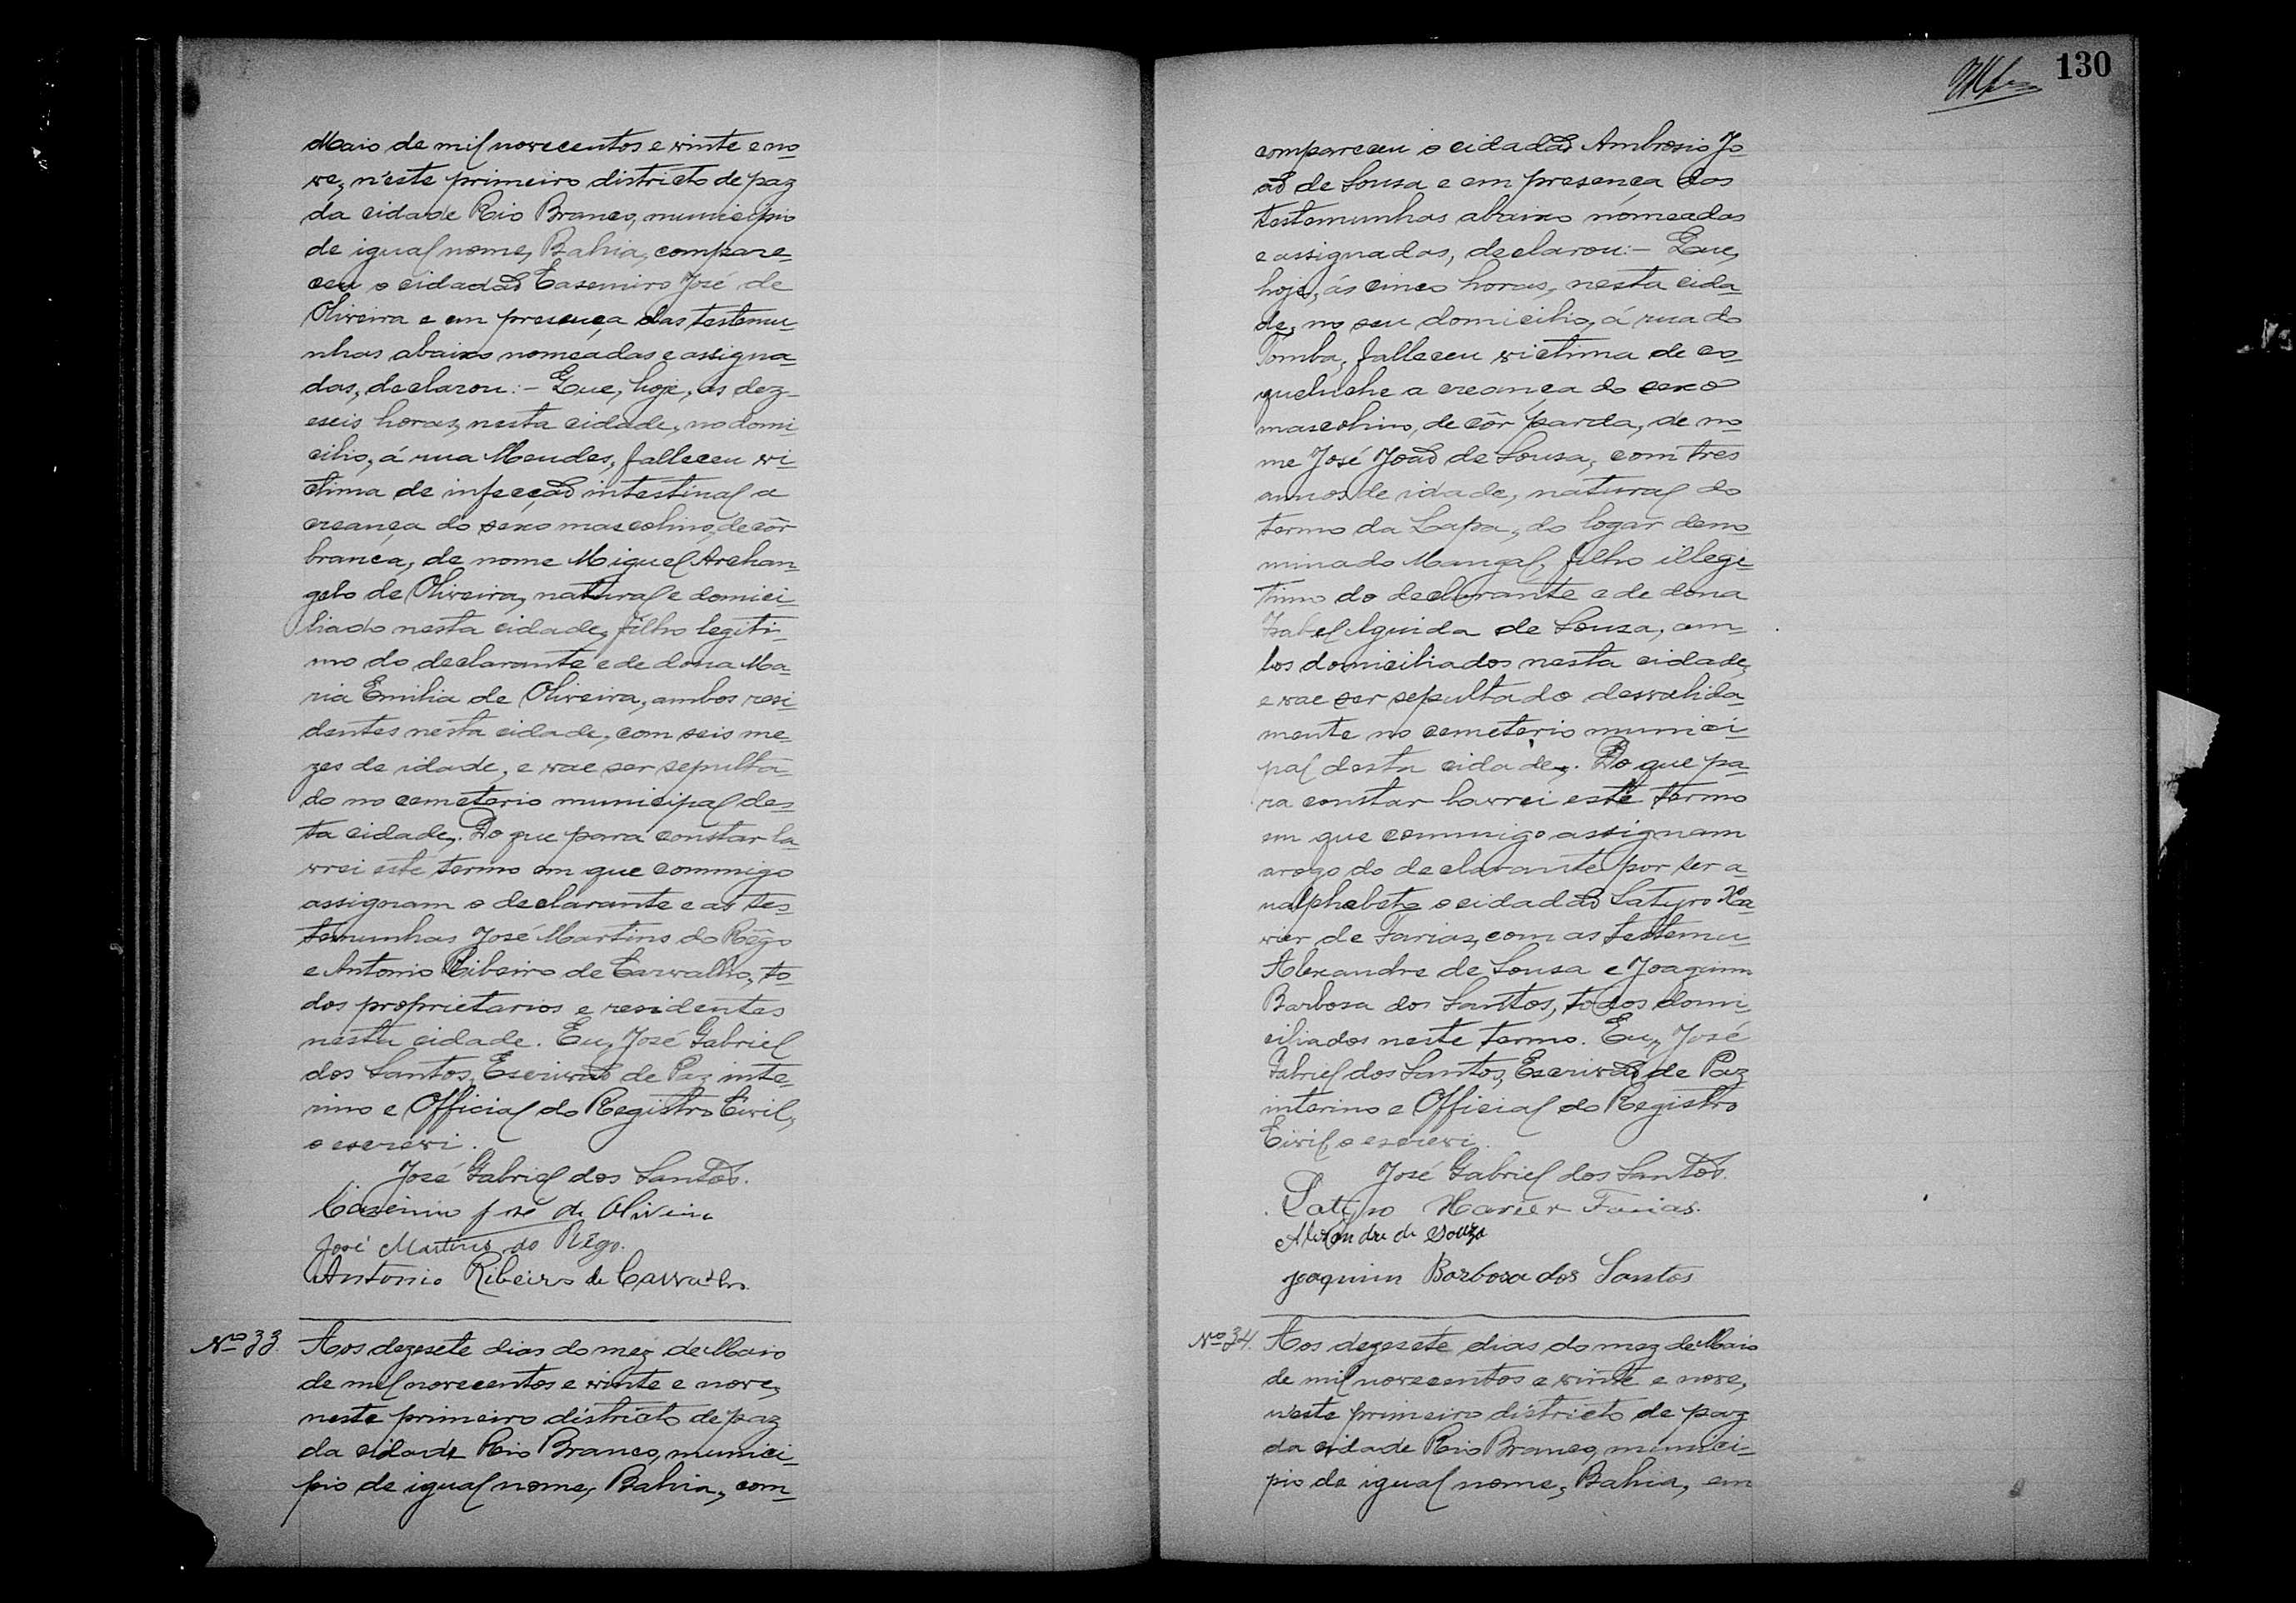 Maio de mil novecentos e vinte e no=
ve, n'este primeiro districto de paz
da cidade Rio Branco, municipio
de igual nome, Bahia, compare=
ceu o cidadão Casemiro José de
Oliveira e em presença das testemu=
nhas abaixo nomeadas e assigna=
das, declarou:- Que, hoje, as dez=
eseis horas, nesta cidade, no domi=
cilio, á rua Mendes, falleceu vi=
ctima de infecção intestinal a
creança do sexo mascolino, de côr
branca, de nome Miguel Archan=
gelo de Oliveira, natural e domici=
liado nesta cidade, filho legiti=
mo do declarante e de dona Ma=
ria Emilia de Oliveira, ambos resi=
dentes nesta cidade, com seis me=
zes de idade, e vae ser sepulta=
do no cemeterio municipal des=
ta cidade. Do que para constar la=
vrei este termo em que commigo
assignam o declarante e as tes=
temunhas José Martins do Rêgo
e Antonio Ribeiro de Carvalho, to=
dos proprietarios e residentes
nesta cidade. Eu, José Gabriel
dos Santos, Escrivão de Paz inte=
rino e Official do Registro Civil,
o escrevi.
José Gabriel dos Santos.
Casemiro José de Oliveira
José Martins do Rêgo.
Antonio Ribeiro de Carvalho.
Nº 33. Aos dezesete dias do mez de Maio
de mil novecentos e vinte e nove,
neste primeiro districto de paz
da cidade Rio Branco, munici=
pio de igual nome, Bahia, com=
130
compareceu o cidadão Ambrosio Jo=
ão de Sousa e em presença das
testemunhas abaixo nomeadas
e assignadas, declarou:- Que,
hoje, ás cinco horas, nesta cida=
de, no seu domicilio, á rua do
Tomba, falleceu victima de co=
queluche a creança do sexo
mascolino, de côr parda, de no=
me José João de Sousa, com tres
annos de idade, natural do
termo da Lapa, do logar deno=
minado Mangal, filho illegi=
timo do declarante e de dona
Izabel Aguida de Sousa, am=
bos domiciliados nesta cidade,
e vae ser sepultado desvalida=
mente no cemeterio munici=
pal desta cidade. Do que pa=
ra constar lavrei este termo
em que commigo assignam
arogo do declarante por ser a=
nalphabeto o cidadão Satyro Xa=
vier de Farias, com as testemu=
Alexandre de Sousa e Joaquim
Barbosa dos Santos, todos domi=
ciliados neste termo. Eu, José
Gabriel dos Santos, Escrivão de Paz
interino e Official do Registro
Civil o escrevi.
José Gabriel dos Santos.
Satyro Xavier Farias.
Alexandre de Souza
Joaquim Barbosa dos Santos
Nº 34. Aos dezesete dias do mez de Maio
de mil novecentos e vinte e nove,
neste primeiro districto de paz
da cidade Rio Branco, munici=
pio de igual nome, Bahia, em